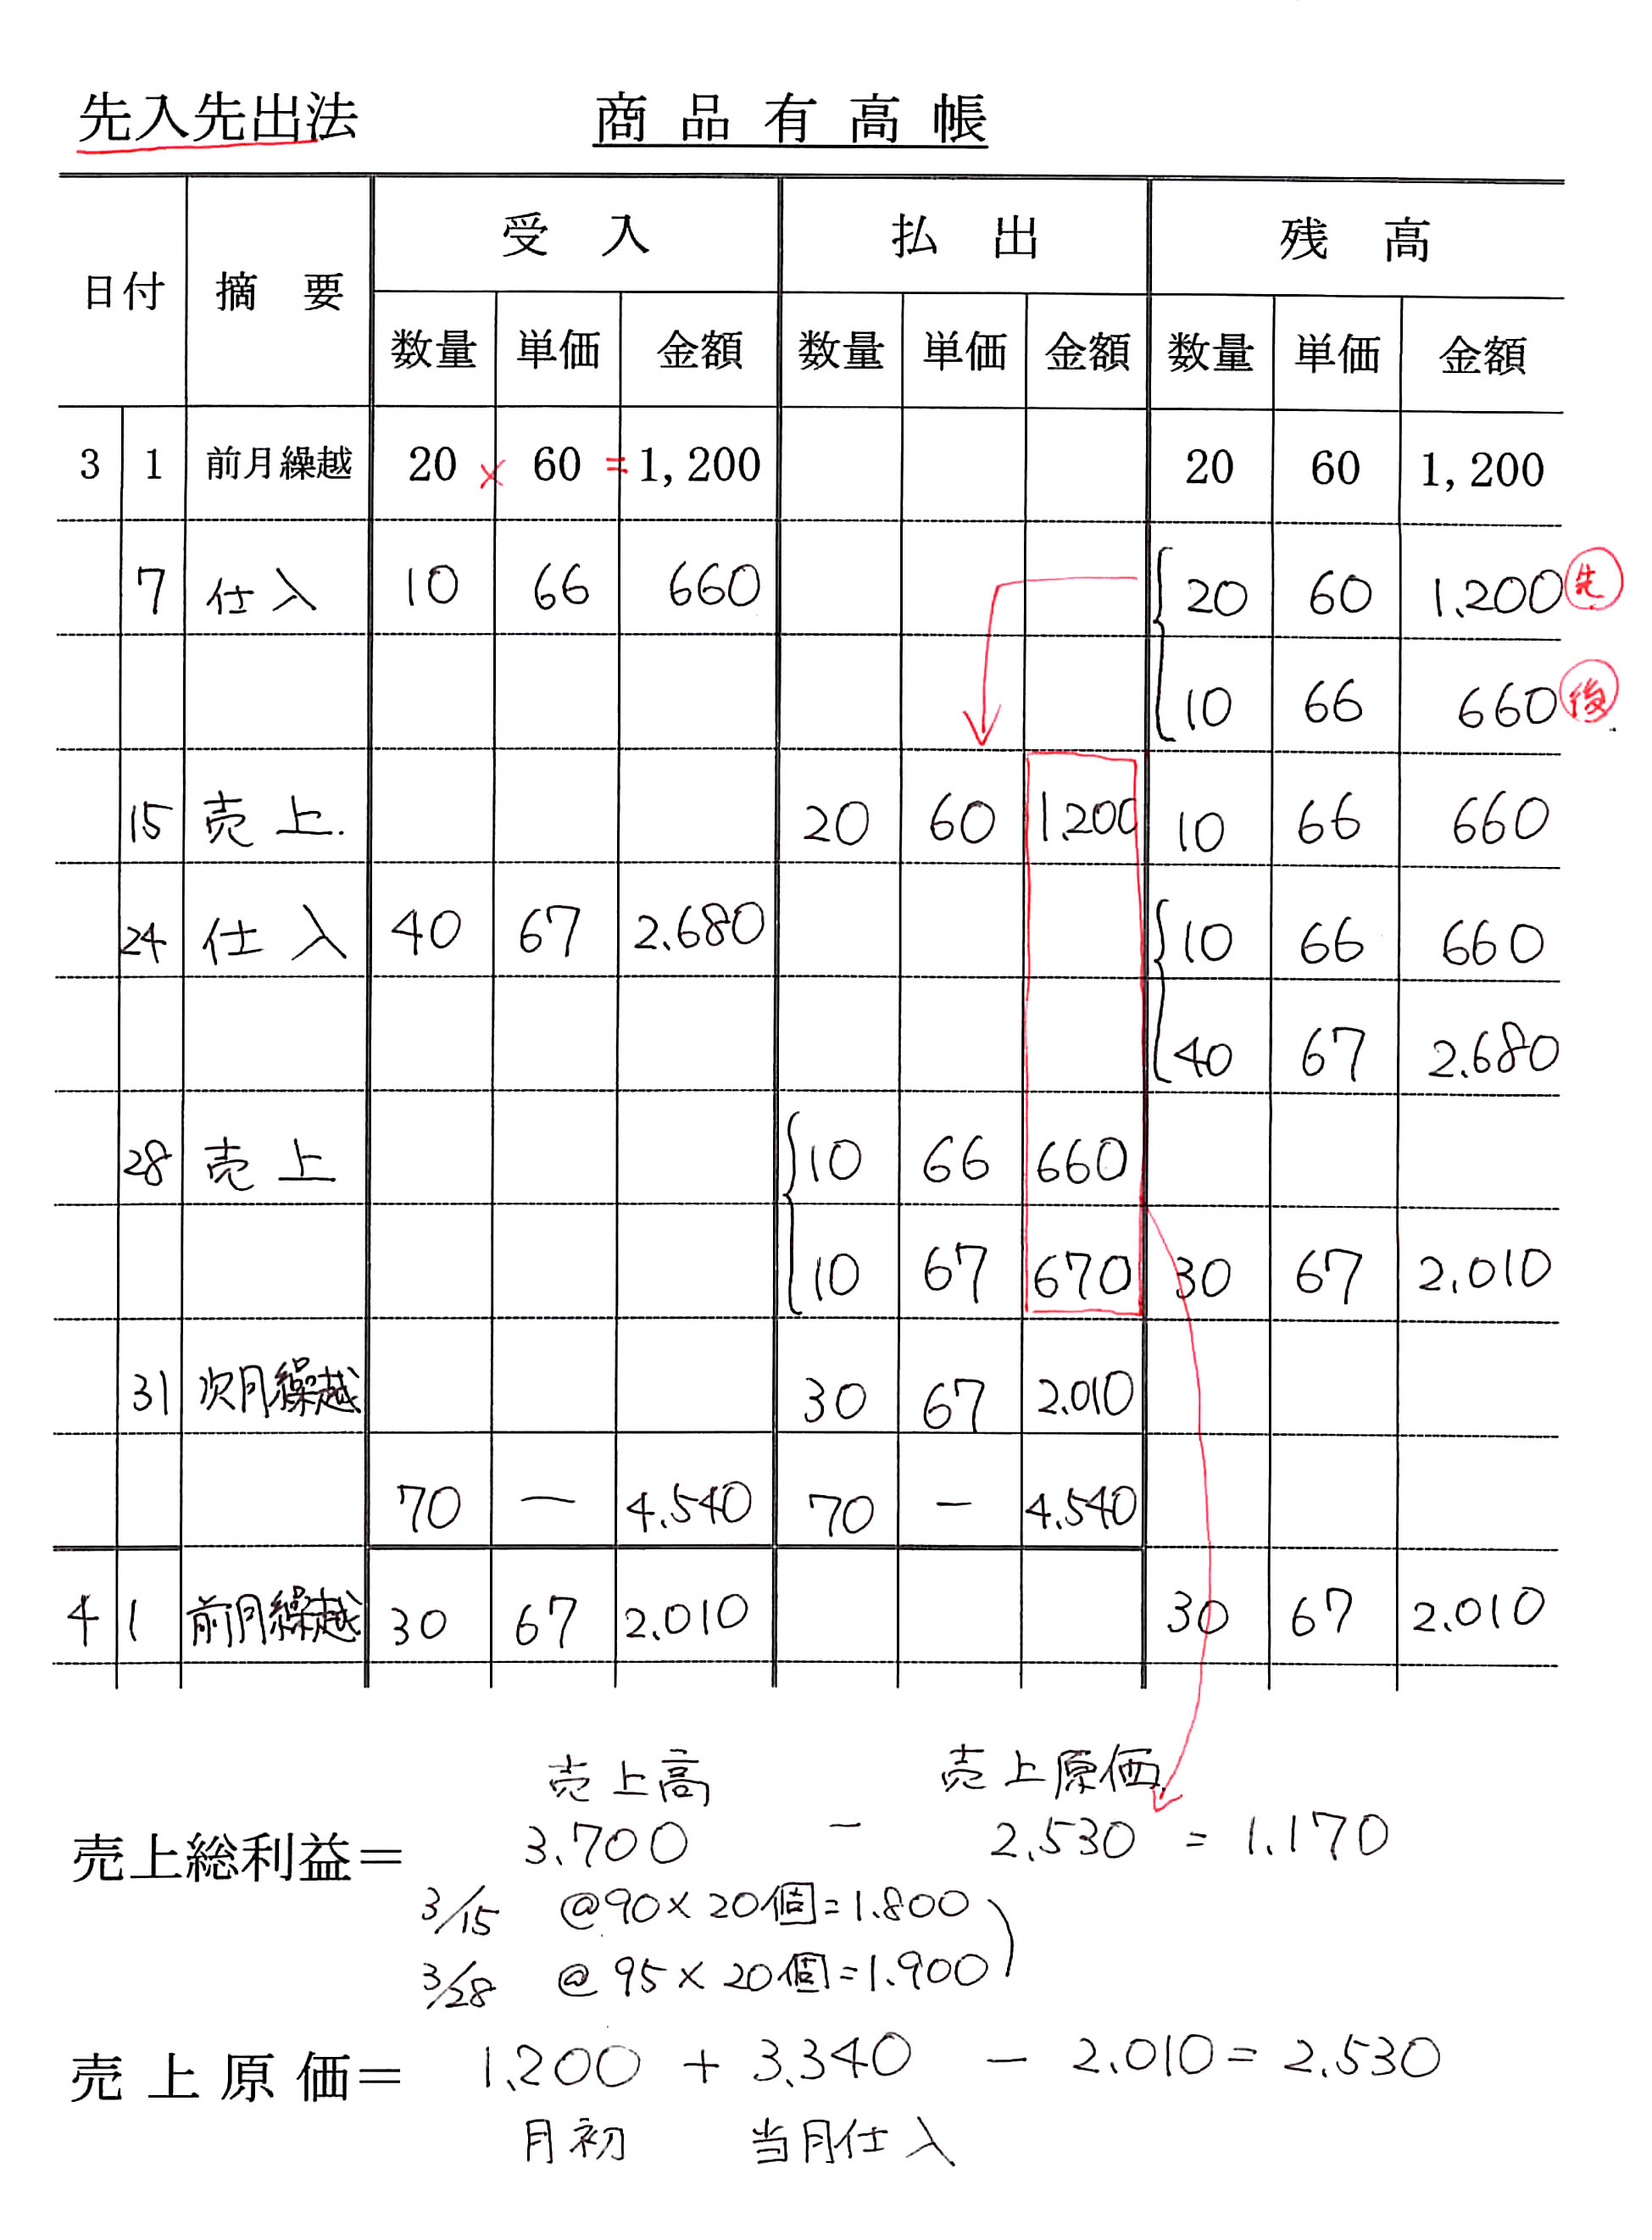 先入先出法 商品有高帳
日付 摘要 受入 払出 残高
数量 単価 金額 数量 単価 金額 数量 単価 金額
3 1 前月繰越 20 × 60 = 1,200 20 60 1,200
7 仕入 10 66 660 20 60 1.200 先
10 66 660 後
15 売上. 20 60 1.200 10 66 660
24 仕入 40 67 2.680 10 66 660
40 67 2.680
28 売上 10 66 660
10 67 670 30 67 2.010
31 次月繰越 30 67 2.010
70 ー 4.540 70 ー 4.540
4 1 前月繰越 30 67 2.010 30 67 2.010
売上高 売上原価
売上総利益= 3.700 - 2.530 = 1.170
3/15 @90×20個=1.800
3/28 @95×20個=1.900
売上原価= 1.200 + 3.340 - 2.010 = 2.530
月初 当月仕入